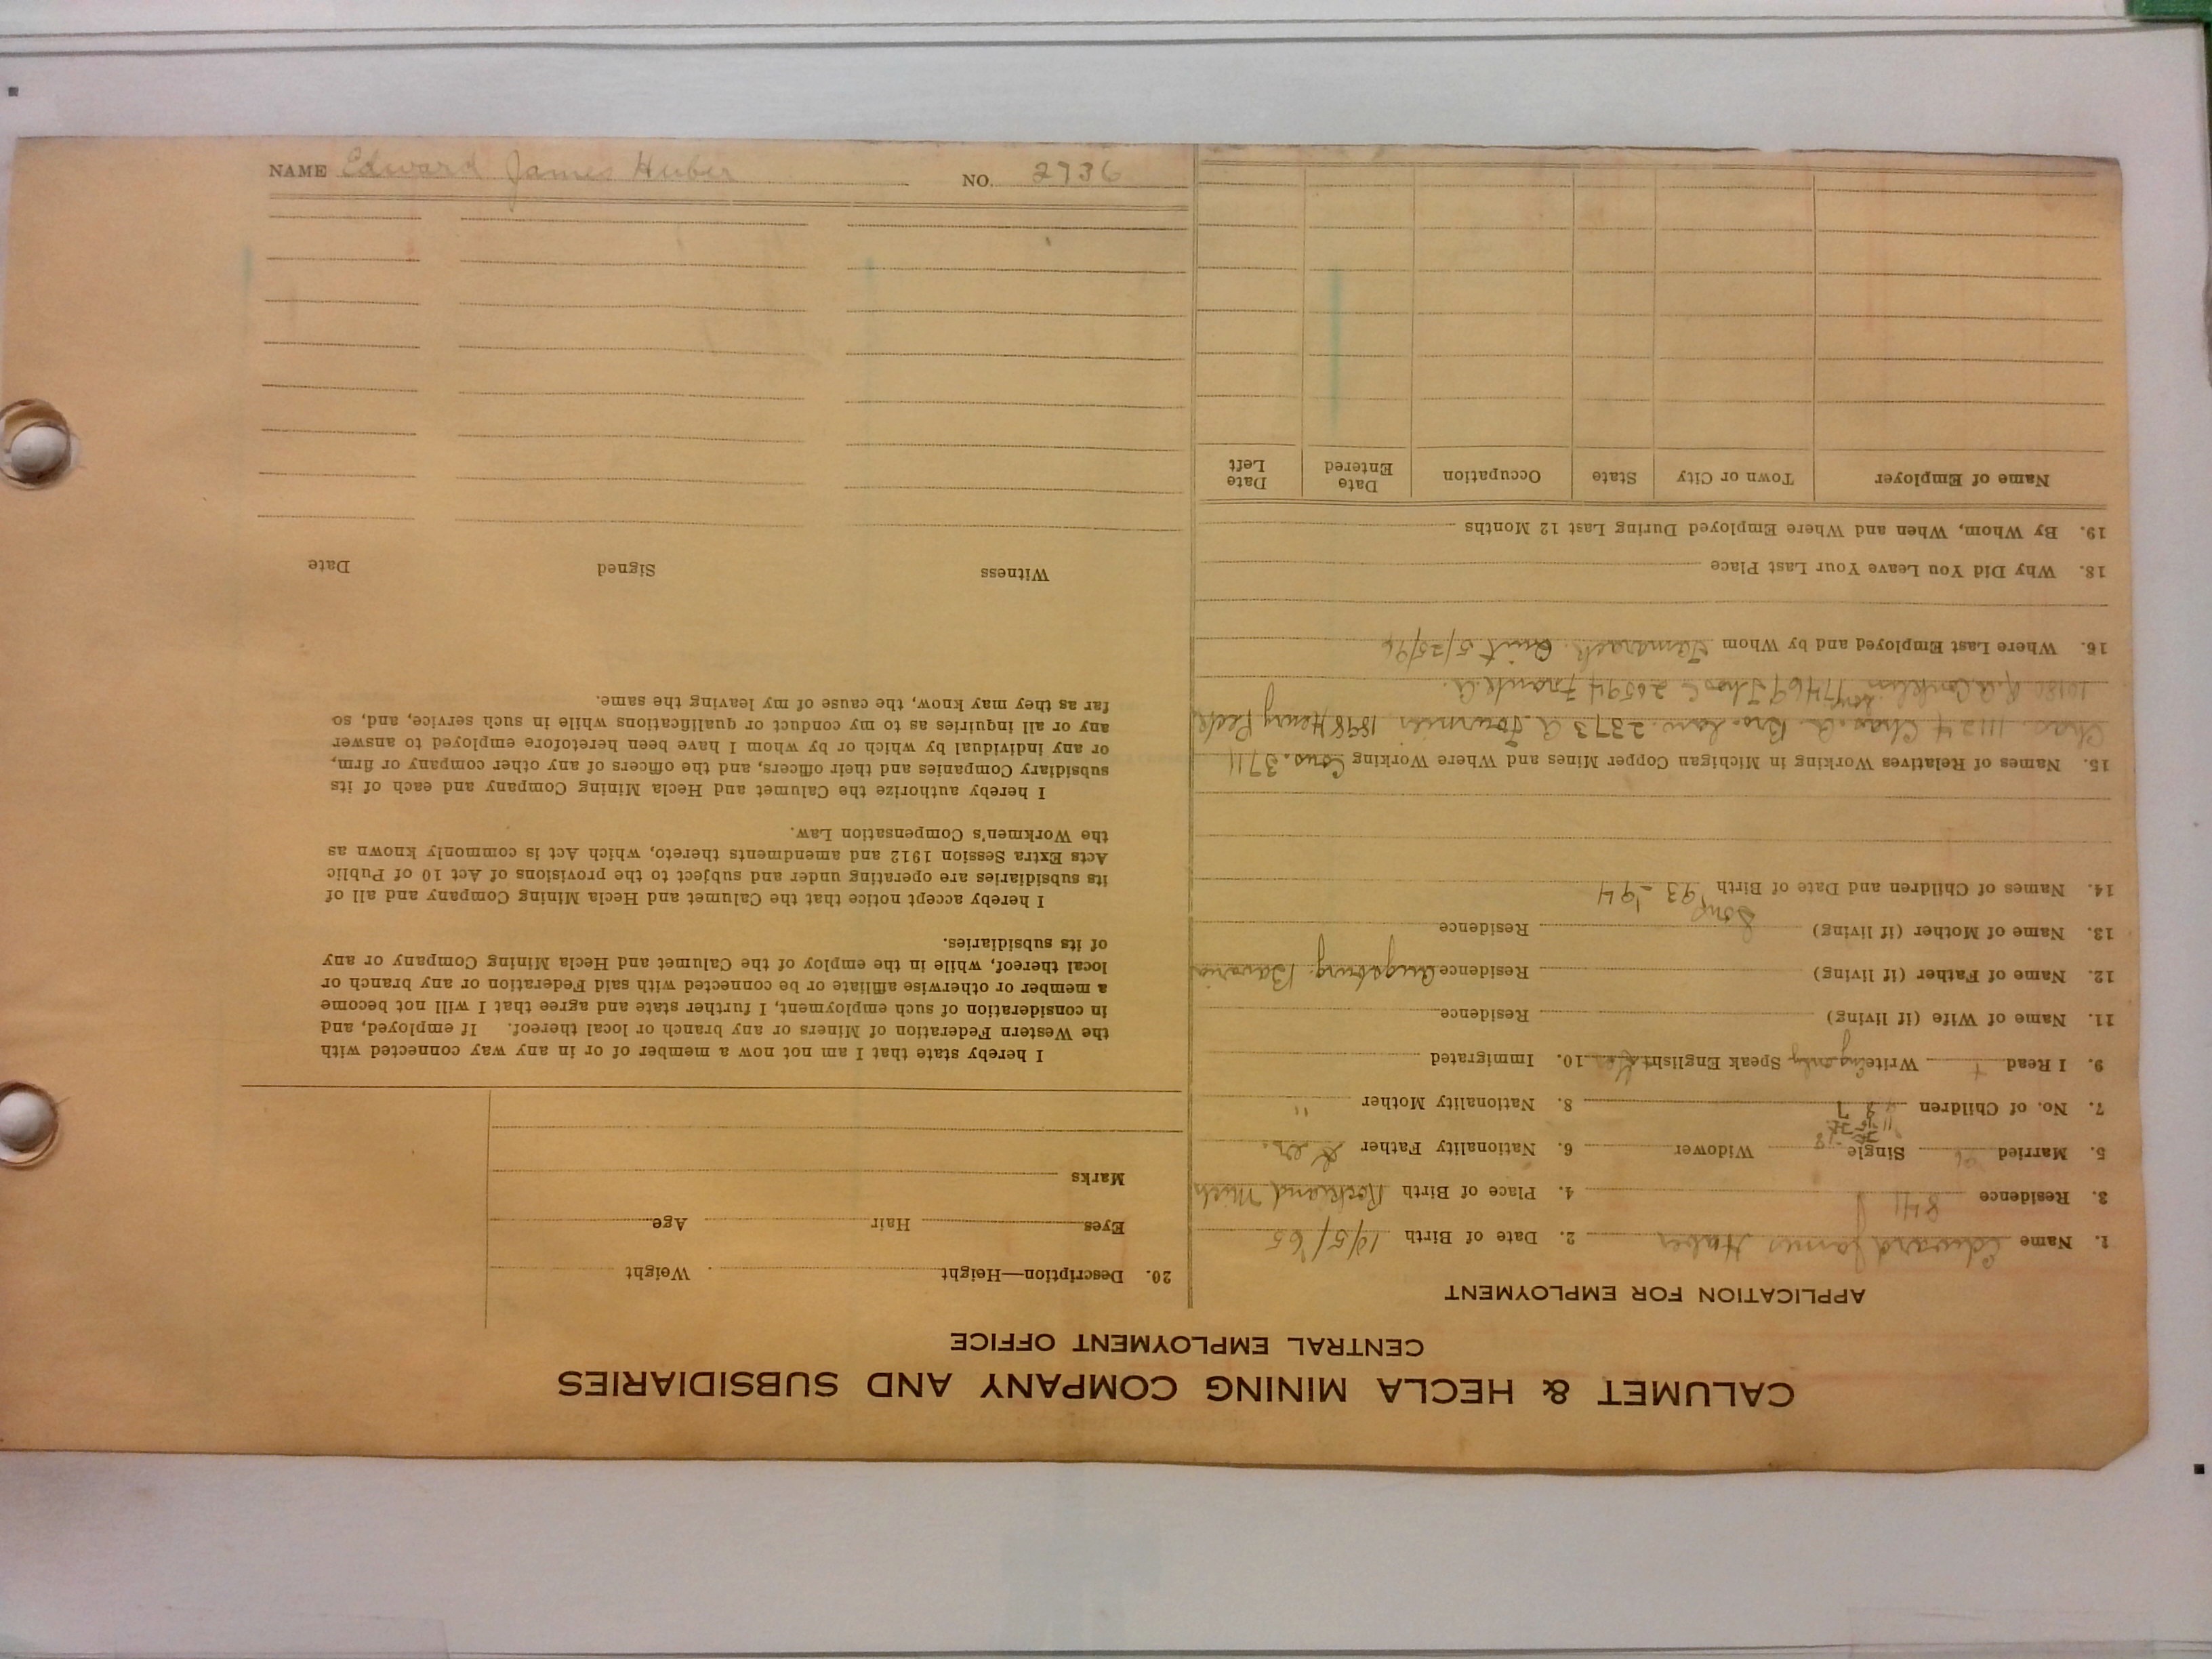 CALUMET & HECLA MINING COMPANY AND SUBSIDIARIES
CENTRAL EMPLOYMENT OFFICE
APPLICATION FOR EMPLOYMENT
1. Name Edward James Huber 2. Date of Birth 10/5/65
3. Residence 8411 4. Place of Birth Rockland Mich
5. Married 96 Single Widower 6. Nationality Father Ger.
7. No. of Children 7 8. Nationality Mother "
9. I Read + Write Eng only Speak English Yes 10. Immigrated
11. Name of Wife (if living) Residence
12. Name of Father (if living) Residence Augsburg Bavaria
13. Name of Mother (if living) Residence
14. Names of Children and Date of Birth Sons '93 - '94
15. Names of Relatives Working in Michigan Copper Mines and Where Working Cous. 3711
Chas 11124 Chas. A. Bro. Law. 2373 A. Fournier 1898 Henry
10180 R.A. Conklin 17469 Thos C 20594 Frank A.
16. Where Last Employed and by Whom Tamarack. Quit 5/25/96
18. Why Did You Leave Your Last Place
19. By Whom, When and Where Employed During Last 12 Months
Name of Employer Town or City State Occupation Date Entered Date Left
20. Description—Height Weight
Eyes Hair Age
Marks
I hereby state that I am not now a member of or in any way connected with
the Western Federation of Miners or any branch or local thereof. If employed, and
in consideration of such employment, I further state and agree that I will not become
a member or otherwise affiliate or be connected with said Federation or any branch or
local thereof, while in the employ of the Calumet and Hecla Mining Company or any
of its subsidiaries.
I hereby accept notice that the Calumet and Hecla Mining Company and all of
its subsidiaries are operating under and subject to the provisions of Act 10 of Public
Acts Extra Session 1912 and amendments thereto, which Act is commonly known as
the Workmen's Compensation Law.
I hereby authorize the Calumet and Hecla Mining Company and each of its
subsidiary Companies and their officers, and the officers of any other company or firm,
or any individual by which or by whom I have been heretofore employed to answer
any or all inquiries as to my conduct or qualifications while in such service, and, so
far as they may know, the cause of my leaving the same.
Witness Signed Date
NAME Edward James Huber NO. 2736